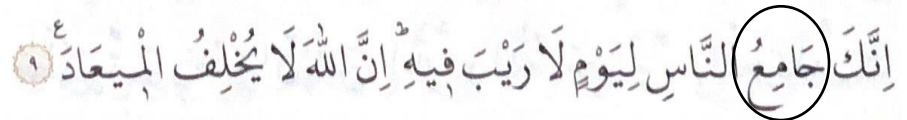 اِنَّكَ جَامِعُ النَّاسِ لِيَوْمٍ لَا رَيْبَ فِيهِۜ اِنَّ اللّٰهَ لَا يُخْلِفُ الْمِيعَادَ۟ ﴿٩﴾